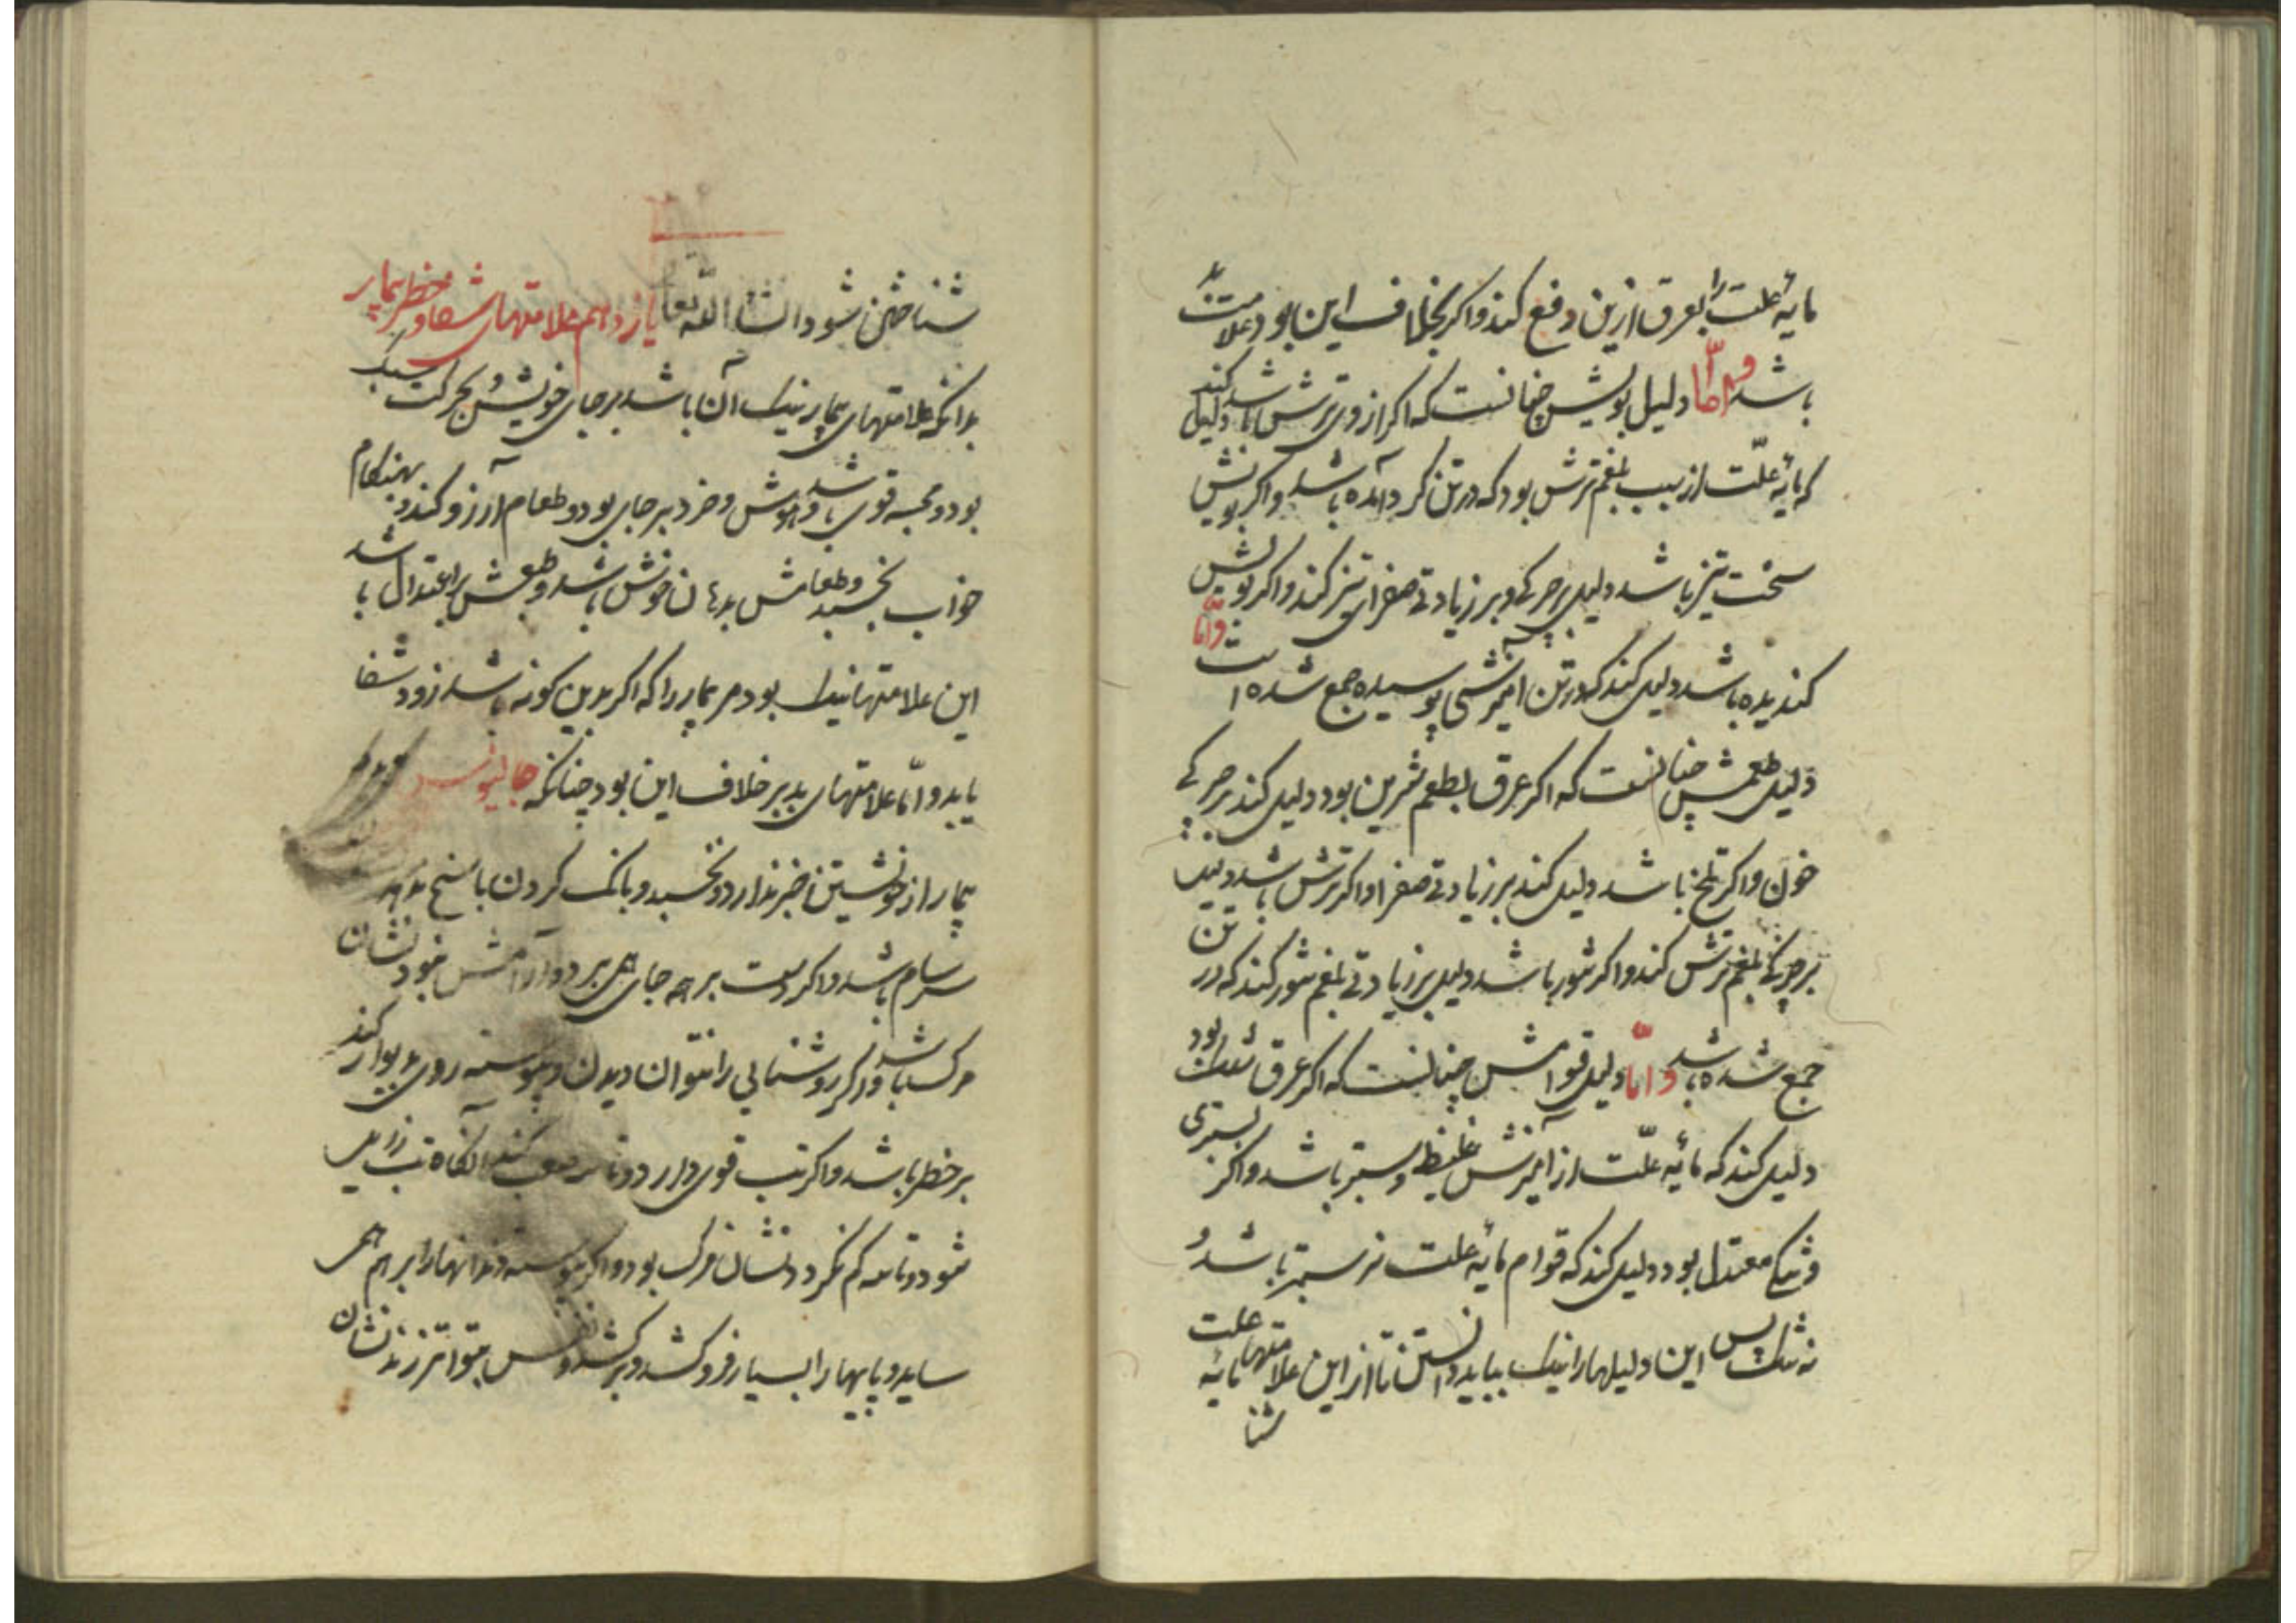 مایهٔ علت را بعرق ازین دفع کند و اکر بخلاف این بود علامت بد
باشد و اما دلیل بویش چنانست که اکر از وی ترش باشد دلیل کند
که مایهٔ علّت از سبب بلغم ترش بود که در تن کرد آمده باشد و اکر بویش
سخت تیز باشد دلیل بر چیرکی و بر زیادتی صفرای تیز کند و اکر بویش
کندیده باشد دلیل کند که در تن آمیزشی پوسیده جمع شده است و امّا
دلیل طعمش چنانست که اکر عرق بطعم شیرین بود دلیل کند بر چیرکی
خون و اکر تلخ باشد دلیل کند بر زیادتی صفرا و اکر ترش باشد دلیل
بر چیرکی بلغم ترش کند و اکر شور باشد دلیل بر زیادتی بلغم شور کند که در تن
جمع شده باشد و امّا دلیل قوامش چنانست که اکر عرق تنک بود
دلیل کند که مایهٔ علّت از آمیزش غلیظ و ستبر باشد و اکر بستبری
و تنکی معتدل بود دلیل کند که قوام مایهٔ علت نه ستبر باشد و
نه تنک پس این دلیلها را نیک بباید دانستن تا از این علامتها مایهٔ علت
شنا
شناختن شود انشاء الله تعا یازدهم علامتهای شفا و خطر بیمار
بدانکه علامتهای بیمار نیک آن باشد بر جای خویش و بحرکت سبک
بود و مجسه قوی باشد و هوش و خرد بر جای بود و طعام آرزو کند و بهنکام
خواب بخسبد و طعامش بدهان خوش باشد و طبعش براعتدال باشد
این علامتها نیک بود مر بیمار را که اکر بدین کونه باشد زود شفا
یابد و امّا علامتهای بد بر خلاف این بود چنانکه جالینوس کوید
بیمار از خویشتن خبر ندارد و نخسبد و بانک کردن پاسخ ندهد
سرسام باشد و اکر دست بر همه جای همی برد و آرامش نبود نشان
مرک باشد و اکر روشنایی را نتوان دیدن و پیوسته روی بدیوار کند
بر خطر باشد و اکر تب قوی دارد و کند آنکاه تب زایل
شود و تاسه کم نکردد نشان مرک بود و اکر پیوسته دندانها را بر هم همی
ساید و پایها را بسیار فرو کشد و بر کشد و نفس متواتر زند نشان